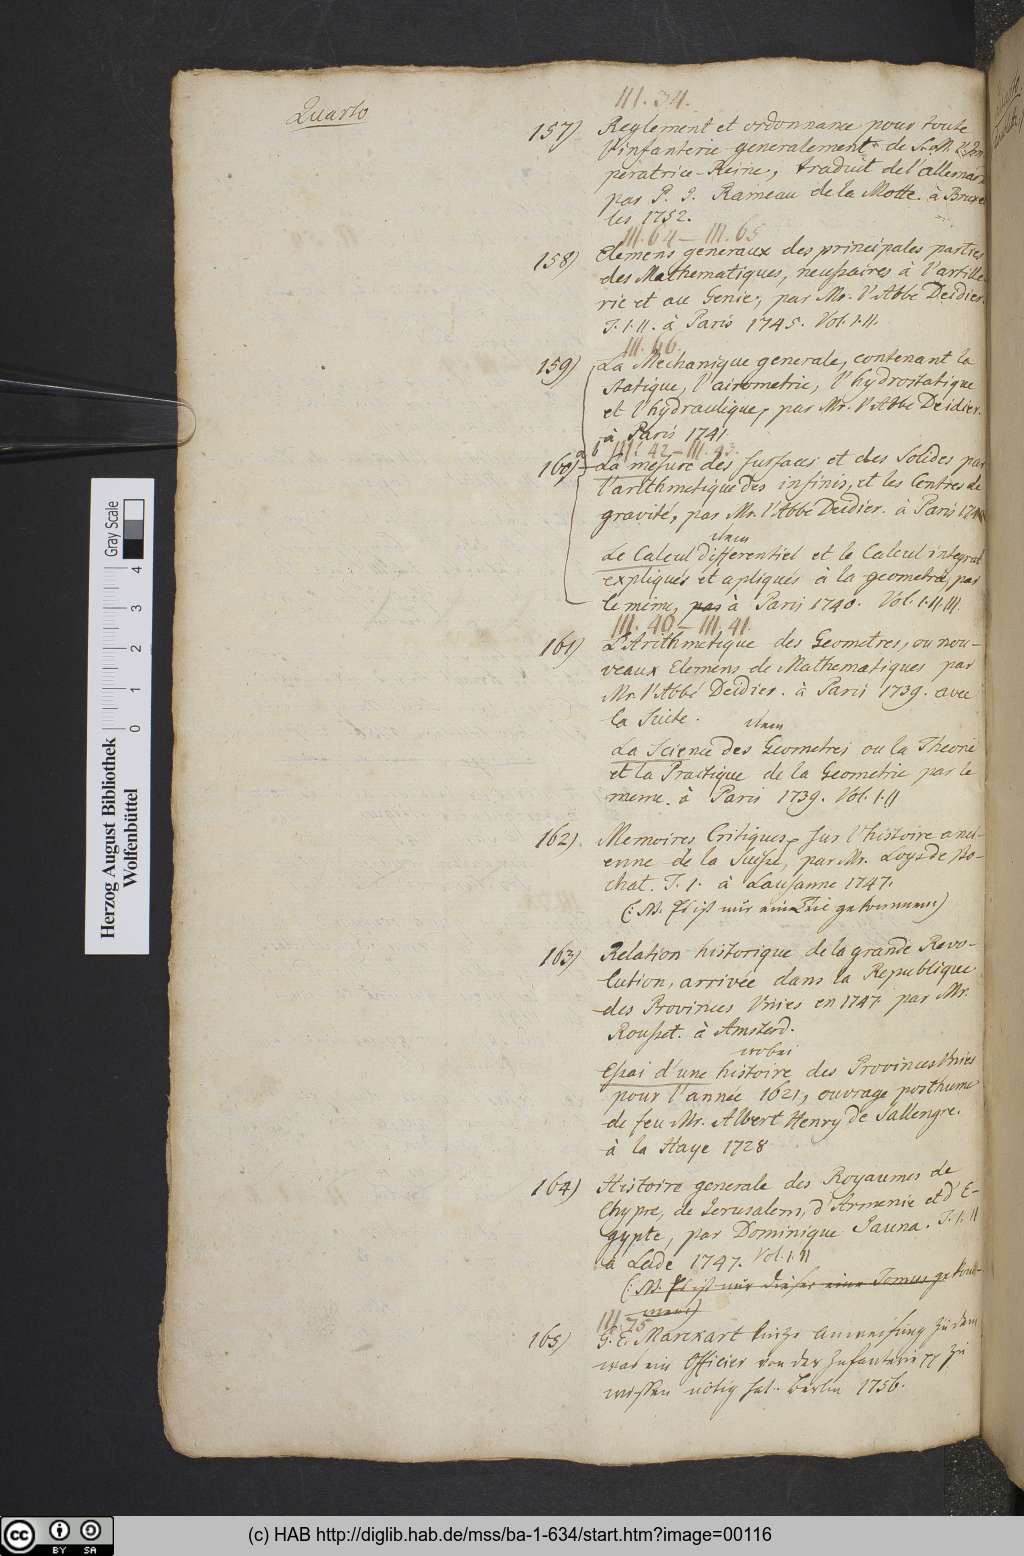 Quarto
III. 34.
157) Reglement et ordonnance pour toute
l'infanterie generalement de S. M. l'Im
peratrice-Reine, traduit de l'alleman
par P. J. Rameau de la Motte. à Bruxel
les 1752.
III. 64 - III. 65
158) Elemens generaux des principales parties
des Mathematiques, necessaires à l'artille
rie et au Genie, par Mr. l'Abbé Deidier.
T. I. II. à Paris 1745. Vol. I. II.
III. 66.
159) La Mechanique generale, contenant la
statique, l'airometrie, l'hydrostatique
et l'hydraulique, par Mr. l'Abbé Deidier.
à Paris 1741
a b III. 42 - III. 43.
160) La mesure des surfaces et des Solides par
l'arithmetique des infinis, et les Centres de
gravité, par Mr. l'Abbé Deidier. à Paris 1740
item
Le Calcul differentiel et le Calcul integral
expliqués et apliqués à la geometrie, par
le mème, par à Paris 1740. Vol. I. II. III.
III. 40 - III. 41.
161) L'Arithmetique des Geometres, ou nou-
veaux Elemens de Mathematiques par
Mr. l'Abbé Deidier. à Paris 1739. avec
la Suite.
item
La Science des Geometres ou la Theorie
et la Practique de la Geometrie par le
meme. à Paris 1739. Vol. I. II
162) Memoires Critiques, sur l'histoire anci-
enne de la Suisse, par Mr. Loys de Bo-
chat. T. I. à Lausanne 1747.
(: NB. Es ist nur ein Teil gekommen)
163) Relation historique de la grande Revo-
lution, arrivée dans la Republique
des Provinces Unies en 1747. par Mr.
Rousset. à Amsterd.
wobei
Essai d'une histoire des Provinces Unies
pour l'année 1621, ouvrage posthume
de feu Mr. Albert Henry de Sallengre.
à la Haye 1728
164) Histoire generale des Royaumes de
Chypre, de Jerusalem, d'Armenie et d'E-
gypte, par Dominique Jauna. T. I. II
à Leide 1747. Vol. I. II
(: NB. Es ist nur dieser eine Tomus gekom-
men)
III. 75
165) G. E. Marckart kurze Anweisung zu dem
was ein Officier von der Infanterie zu
wissen nötig hat. Berlin 1756.
Herzog August Bibliothek
Wolfenbüttel
Gray Scale
0 1 2 3 4
cc BY SA
(c) HAB http://diglib.hab.de/mss/ba-1-634/start.htm?image=00116